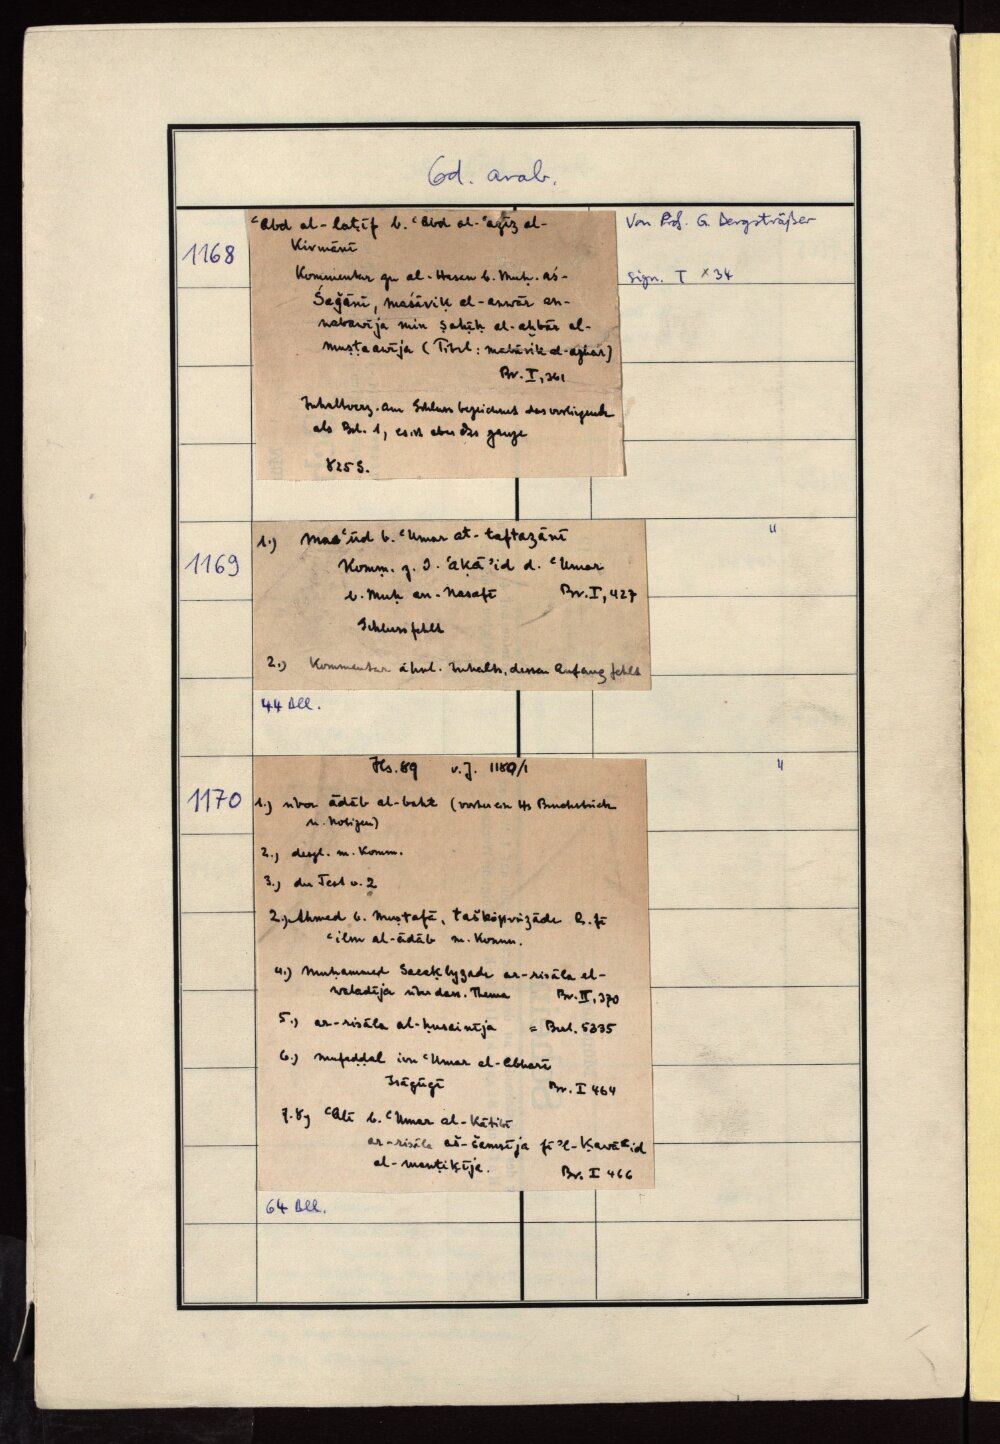 Cod. arab.
1168
ʿAbd al-laṭīf b. ʿAbd al-ʿazīz al-
Kirmānī
Kommentar zu al-Ḥasan b. Muḥ. aṣ-
Ṣaġānī, mašāriḳ al-anwār an-
nabawīja min ṣaḥīḥ al-aḫbār al-
muṣṭafawīja (Titel: mabāriḳ al-azhār)
Br. I, 361
Inhaltverz. am Schluss bezeichnet das vorliegende
als Bd. 1, es ist aber das ganze
825 S.
Von Prof. G. Bergsträßer
Sign. T x 34
1169
1.) Masʿūd b. ʿUmar at-taftazānī
Komm. z. d. ʿaḳāʾid d. ʿUmar
b. Muḥ an-Nasafī Br. I, 427
Schluss fehlt
2.) Kommentar ähnl. Inhalts, dessen Anfang fehlt
44 Bll.
"
1170
Hs. 89 v. J. 1180/1
1.) über ādāb al-baḥt (vorher ein Bruchstück
u. Notizen)
2.) desgl. m. Komm.
3.) der Text v. 2
2.) Ahmed b. Muṣṭafā, ṭašköprüzāde R. fī
ʿilm al-ādāb m. Komm.
4.) Muḥammed ar-risāla el-
waladīja über dass. Thema Br. II, 370
5.) ar-risāla al-ḥusainīja = Berl. 5335
6.) Mufaḍḍal ibn ʿUmar el-Abharī
Isāgūgī Br. I 464
7.8) ʿAlī b. ʿUmar al-Kātibī
ar-risāla aš-šamsīja fī ʾl-Ḳawāʿid
al-manṭiḳīja. Br. I 466
64 Bll.
"